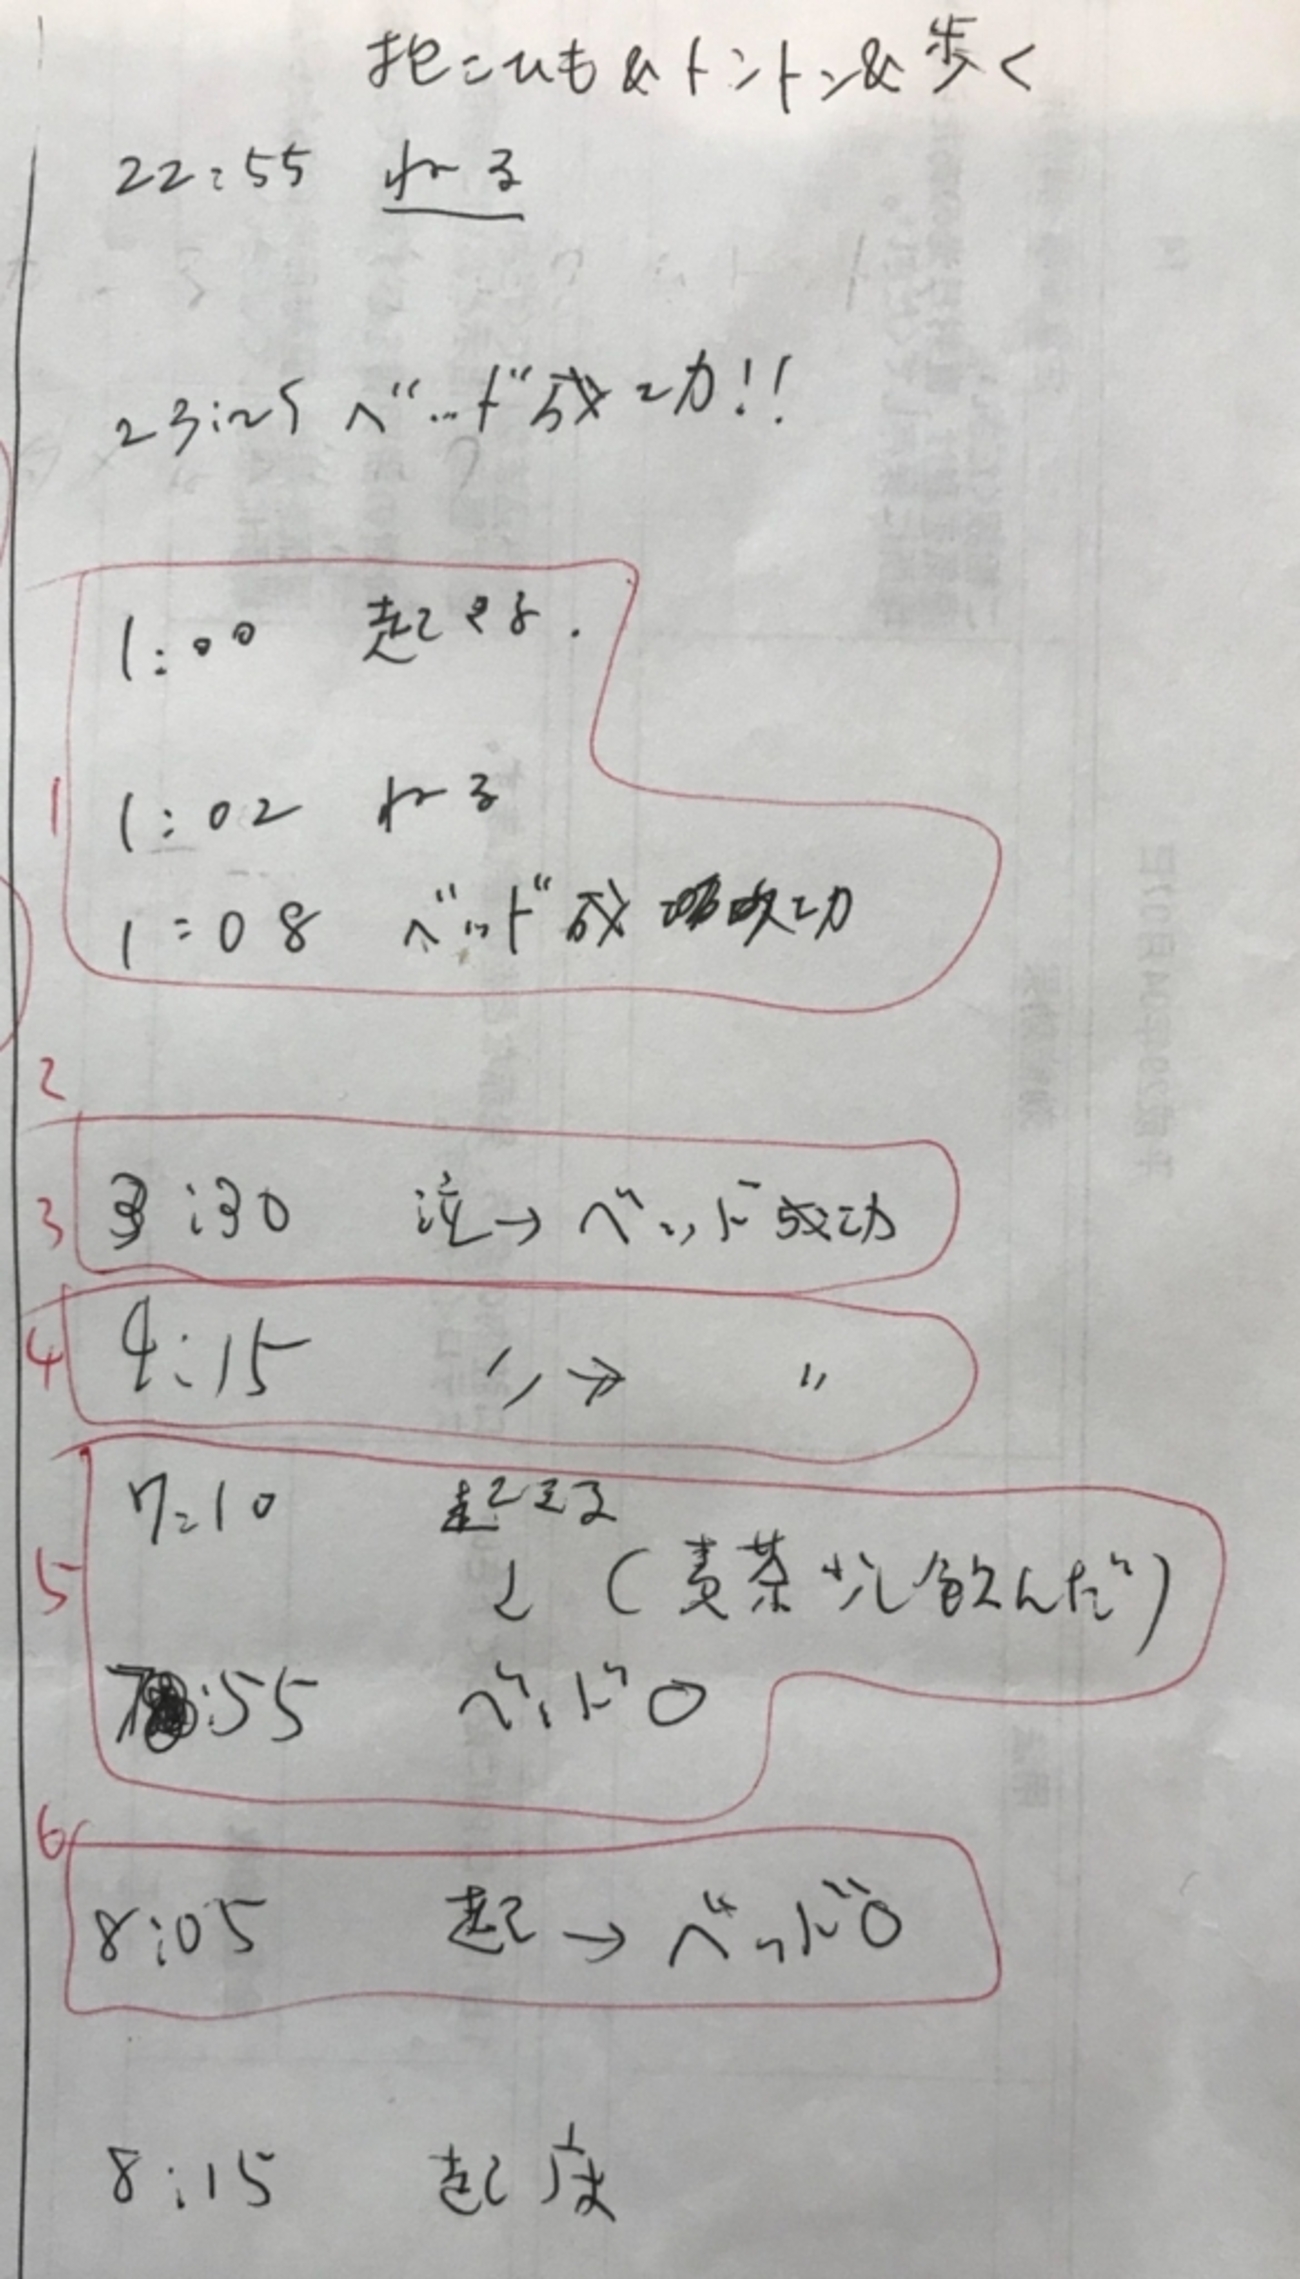 抱こひも&トントン&歩く
22:55 ねる
23:25 ベッド成功!!
1:00 起きる.
1 1:02 ねる
1:08 ベッド成功
2
3 3:30 泣→ベッド成功
4 4:15 〃→ 〃
7:10 起きる
5 ↓ (麦茶少し飲んだ)
7:55 ベッド〇
6
8:05 起→ベッド〇
8:15 起床